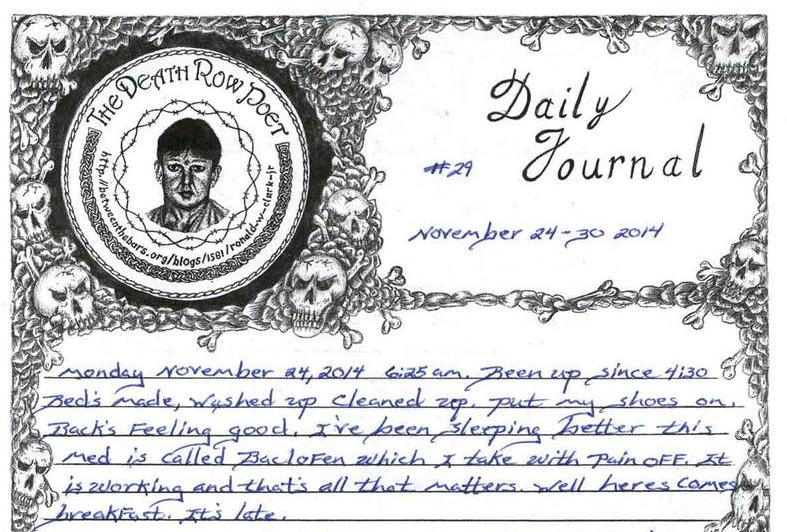 THE DEATH ROW POET
http://betweenthebars.org/blogs/1581/ronald-w-clark-jr
Daily
Journal
#29
November 24-30 2014
Monday November 24, 2014 6:25 am. Been up since 4:30
Bed's made, washed up cleaned up, put my shoes on.
Back's Feeling good. I've been sleeping better this
med is called BacloFen which I take with Pain OFF. It
is working and that's all that matters. Well heres comes
breakfast. It's late.